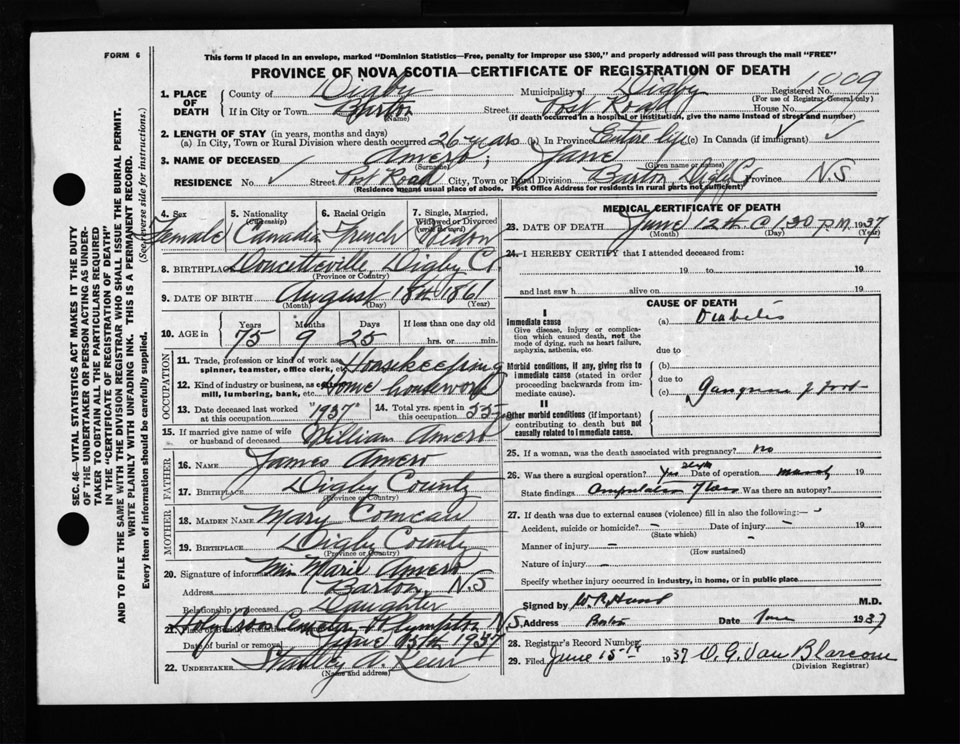 FORM 6
This form if placed in an envelope, marked "Dominion Statistics—Free, penalty for improper use $300," and properly addressed will pass through the mail "FREE"
PROVINCE OF NOVA SCOTIA—CERTIFICATE OF REGISTRATION OF DEATH
1. PLACE OF DEATH
County of Digby Municipality of Digby Registered No. 1009
(For use of Registrar General only)
If in City or Town Barton Street Post Road House No.
(Name) (If death occurred in a hospital or institution, give the name instead of street and number)
2. LENGTH OF STAY (in years, months and days)
(a) In City, Town or Rural Division where death occurred 26 years (b) In Province Entire life (c) In Canada (if immigrant)
3. NAME OF DECEASED Amero, Jane
(Surname) (Given name or names)
RESIDENCE No. Street Post Road City, Town or Division Barton Digby Co Province N.S
(Residence means usual place of abode. Post Office Address for residents in rural parts not sufficient)
4. Sex Female
5. Nationality (Citizenship) Canadian
6. Racial Origin French
7. Single, Married, Widowed or Divorced (write the word) Widow
8. BIRTHPLACE Doucetteville Digby Co.
(Province or Country)
9. DATE OF BIRTH August 18th 1861
(Month) (Day) (Year)
10. AGE in Years 75 Months 9 Days 25 If less than one day hrs. or min.
OCCUPATION
11. Trade, profession or kind of work as spinner, teamster, office clerk, etc. Housekeeping
12. Kind of industry or business, as cotton mill, lumbering, bank, etc. home housework
13. Date deceased last worked at this occupation "1937"
14. Total yrs. spent in this occupation 55
15. If married give name of wife or husband of deceased William Amero
FATHER
16. NAME James Amero
17. BIRTHPLACE Digby County
(Province or Country)
MOTHER
18. MAIDEN NAME Mary Comeau
19. BIRTHPLACE Digby County
(Province or Country)
20. Signature of informant Miss Marie Amero
Address Barton N.S
Relationship to deceased Daughter
21. Place of Burial, Cremation or Removal Holy Cross Cemetery Plympton N.S.
Date of burial or removal June 15th 1937
22. UNDERTAKER Stanley A.
(Name and address)
MEDICAL CERTIFICATE OF DEATH
23. DATE OF DEATH June 12th @ 1:30 P.M. 1937
(Month) (Day) (Year)
24. I HEREBY CERTIFY that I attended deceased from:
19 to 19
and last saw h alive on 19
CAUSE OF DEATH
I
Immediate cause
Give disease, injury or complication which caused death, not the mode of dying, such as heart failure, asphyxia, asthenia, etc.
(a) Diabetes
due to
Morbid conditions, if any, giving rise to immediate cause (stated in order proceeding backwards from immediate cause).
(b)
due to
(c) gangrene of foot
II
Other morbid conditions (if important) contributing to death but not causally related to immediate cause.
25. If a woman, was the death associated with pregnancy? No
26. Was there a surgical operation? Yes Date of operation 19
State findings Amputation of Was there an autopsy?
27. If death was due to external causes (violence) fill in also the following:—
Accident, suicide or homicide? — Date of injury — 19
(State which)
Manner of injury —
(How sustained)
Nature of injury —
Specify whether injury occurred in industry, in home, or in public place
Signed by M.D.
Address Date June 1937
28. Registrar's Record Number
29. Filed June 15th 1937 O. G. Van Blarcom
(Division Registrar)
SEC. 46—VITAL STATISTICS ACT MAKES IT THE DUTY
OF THE UNDERTAKER OR PERSON ACTING AS UNDERTAKER
TO OBTAIN ALL THE PARTICULARS REQUIRED
IN THE "CERTIFICATE OF REGISTRATION OF DEATH"
AND TO FILE THE SAME WITH THE DIVISION REGISTRAR WHO SHALL ISSUE THE BURIAL PERMIT.
WRITE PLAINLY WITH UNFADING INK. THIS IS A PERMANENT RECORD.
Every item of information should be carefully supplied. (See reverse side for instructions.)